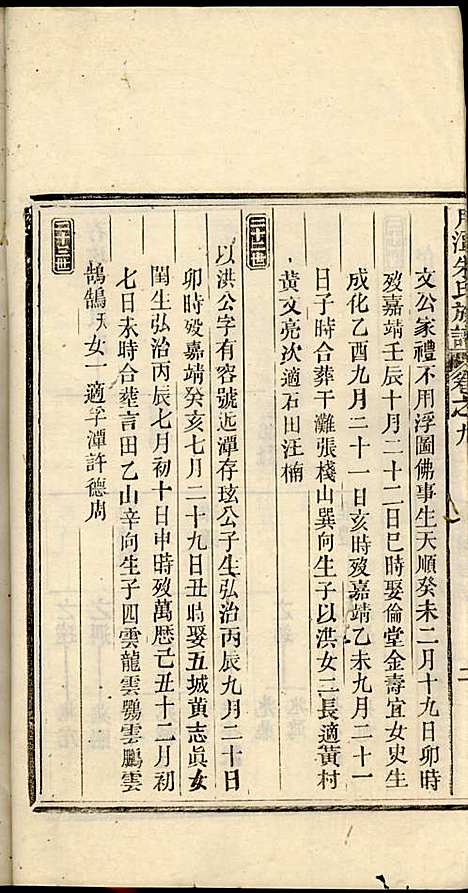 朱氏族譜 卷之九
文公家禮不用浮圖佛事生天順癸未二月十九日卯時
歿嘉靖壬辰十月二十二日巳時娶倫堂金壽宜女史生
成化乙酉九月二十一日亥時歿嘉靖乙未九月二十一
日子時合葬干灘張棧山巽向生子以洪女二長適黃村
黃文亮次適石田汪楠
二十二世
以洪公字有容號近潭存玹公子生弘治丙辰九月二十日
卯時歿嘉靖癸亥七月二十九日丑時娶五城黃志眞女
閨生弘治丙辰七月初十日申時歿萬歷己丑十二月初
七日未時合葬言田乙山辛向生子四雲龍雲鶚雲鵬雲
鵠鵠 女一適孚潭許德周
二十三世